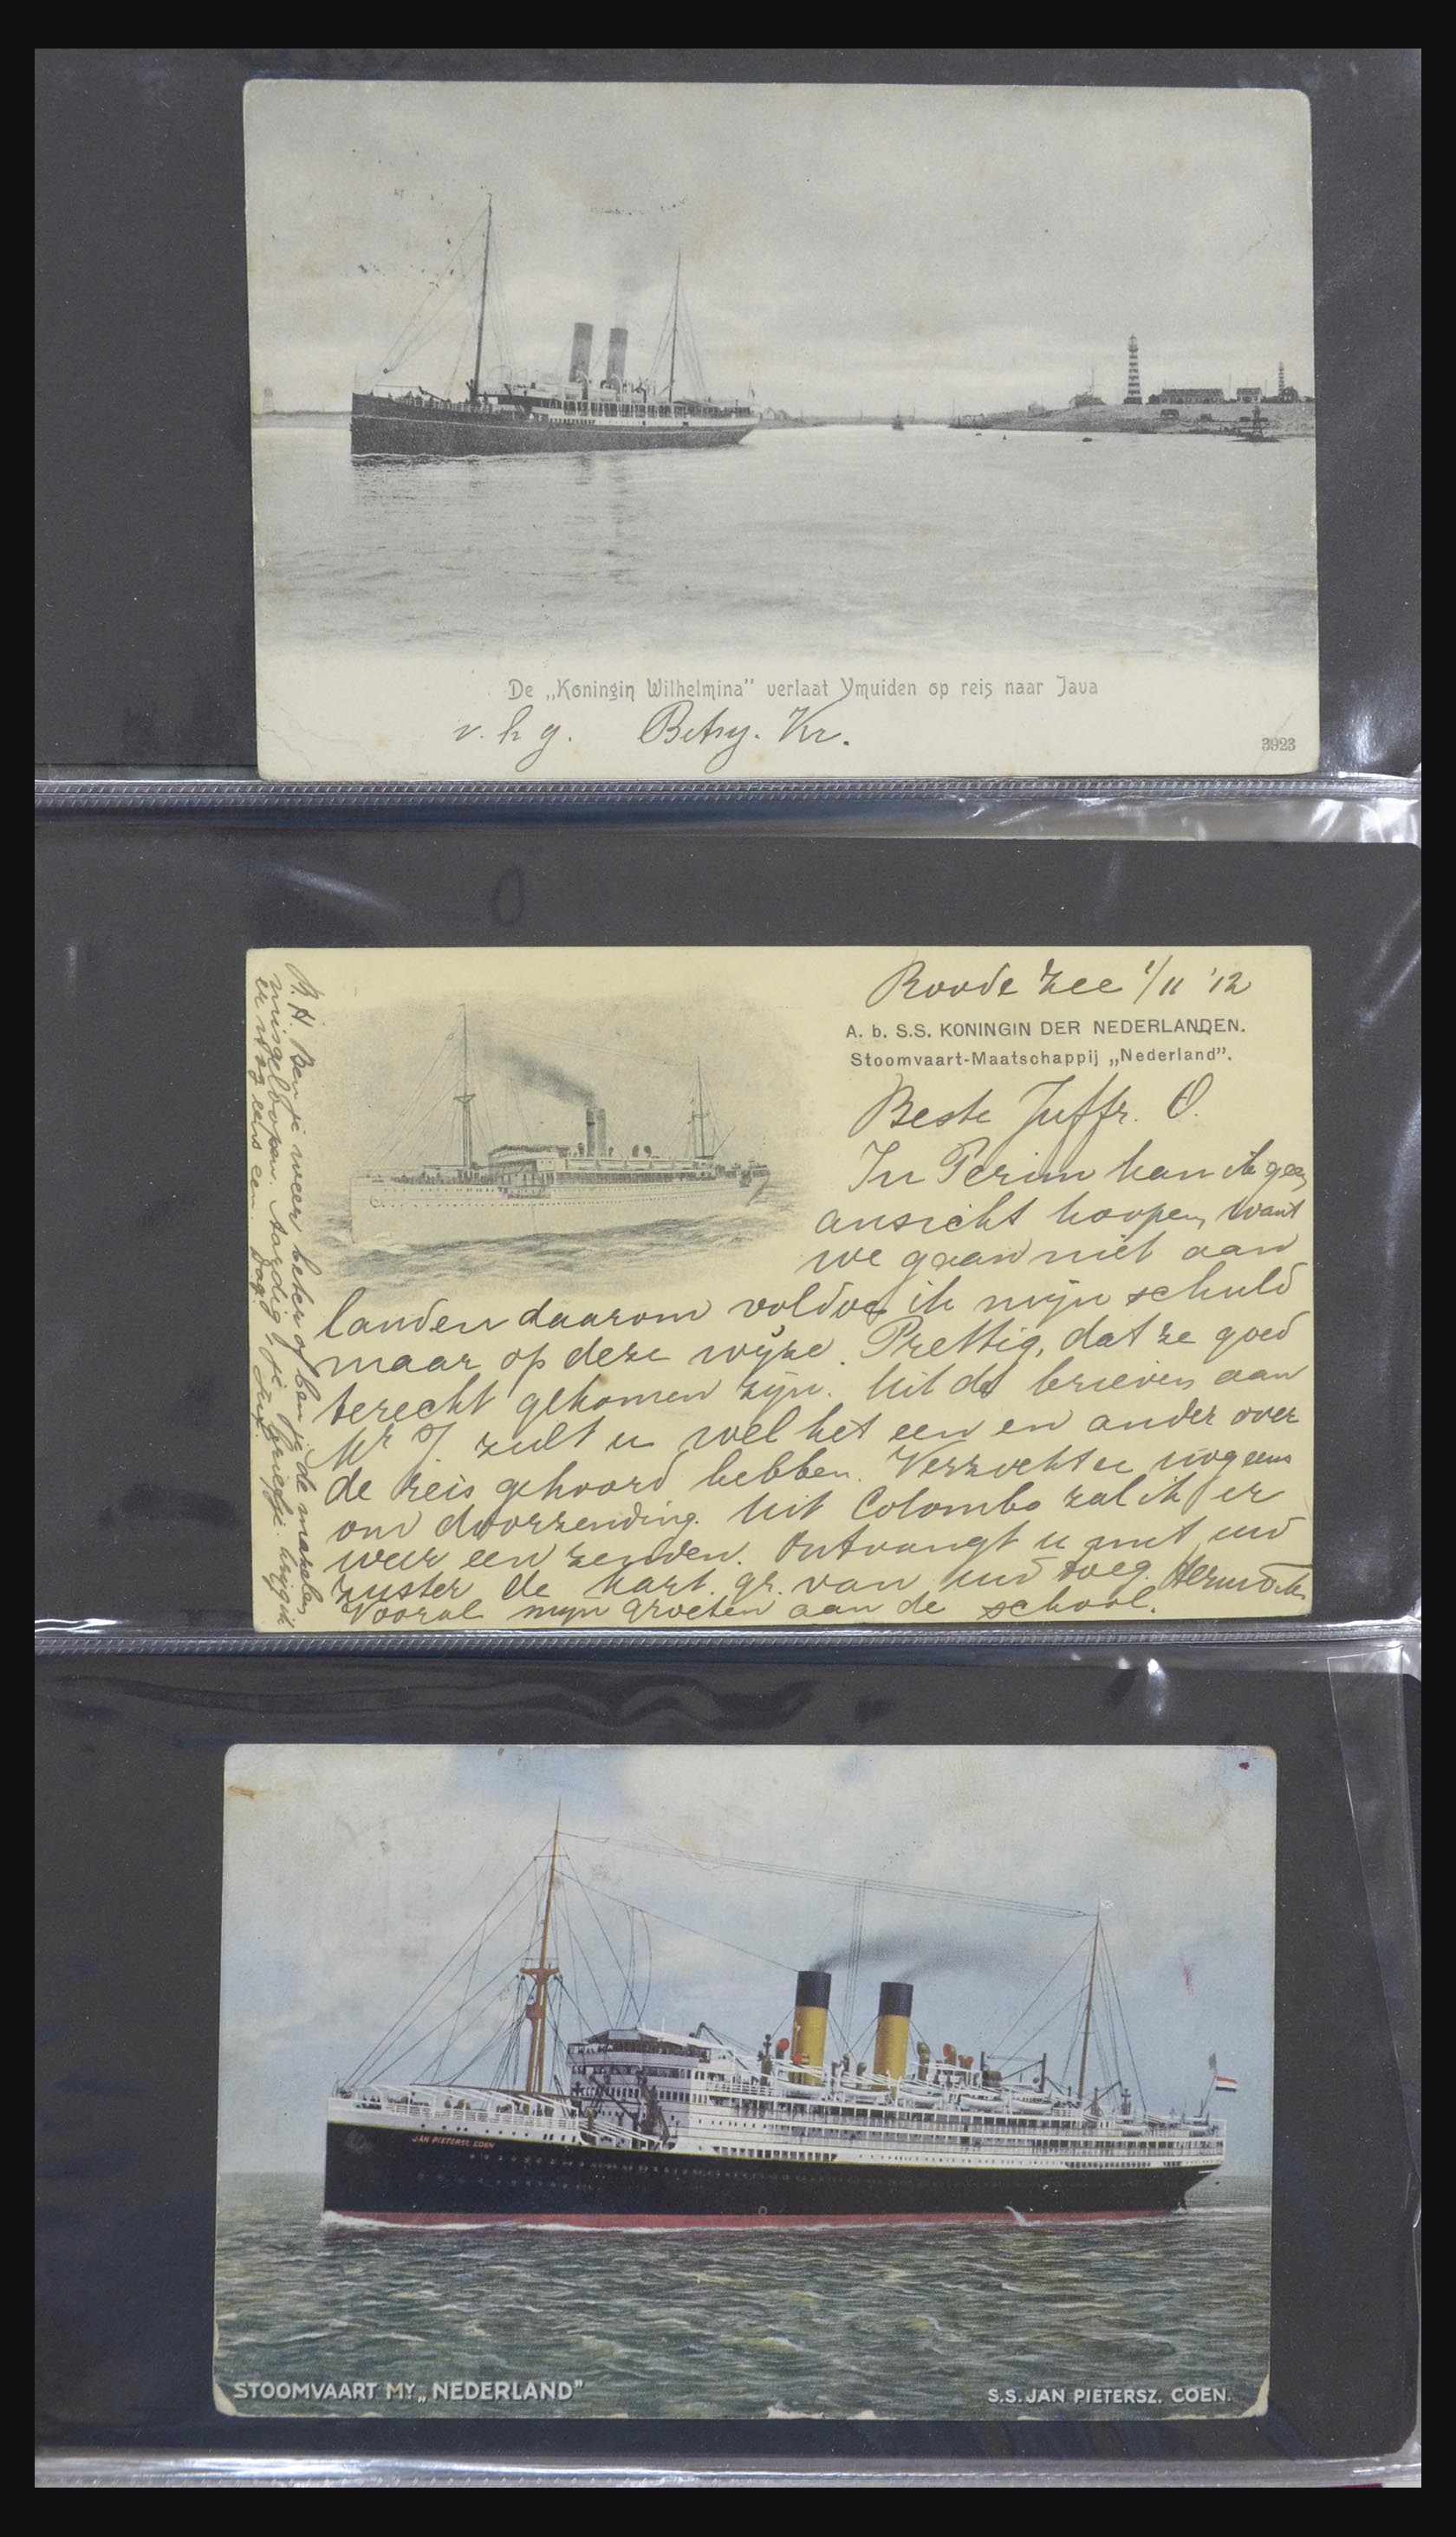 De „Koningin Wilhelmina” verlaat Ymuiden op reis naar Java
v. h g. Betsy. Kr.
3923
Roode Zee 1/11 '12
A. b. S.S. KONINGIN DER NEDERLANDEN.
Stoomvaart-Maatschappij „Nederland”.
Beste Juffr. O.
In Perim kan ik geen
ansicht koopen, want
we gaan niet aan
landen daarom voldoe ik mijn schuld
maar op deze wijze. Prettig, dat ze goed
terecht gekomen zijn. Uit de brieven aan
zult u wel het een en ander over
de reis gehoord hebben. Verzocht u nog eens
om doorzending. Uit Colombo zal ik er
weer een zenden. Ontvangt u met uw
zuster de hart. gr. van uw toeg.
Vooral mijn groeten aan de school.
Ben je weer beter of ben je de mazelen
misgeloopen. Aardig je briefje. krijg ik
er nog eens een. Dag.
JAN PIETERSZ. COEN
STOOMVAART MY. „NEDERLAND”
S.S. JAN PIETERSZ. COEN.